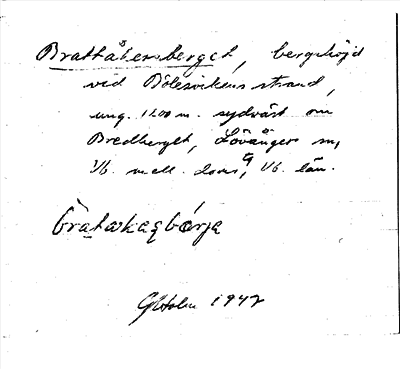 Brattåkersberget, bergshöjd
vid Bölesvikens strand,
ung. 1200 m. sydväst om
Bredberget, Lövångers sn,
Vb. mell. doms, Vb. län.
G Holm 1942